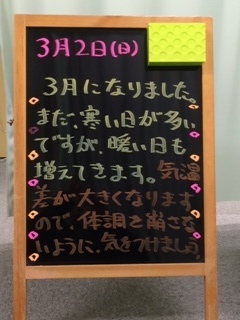 3月2日(日)
3月になりました。
まだ、寒い日が多い
ですが、暖い日も
増えてきます。気温
差が大きくなります
ので、体調を崩さな
いように、気をつけましょう